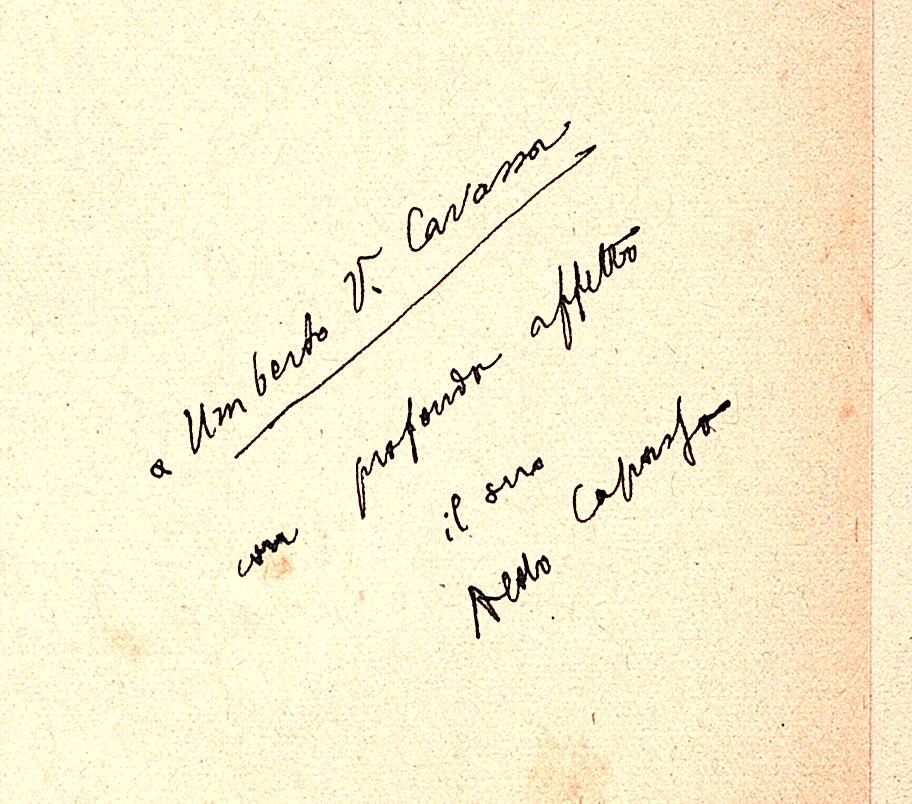 a Umberto V. Cavassa
con profondo affetto
il suo
Aldo Capasso